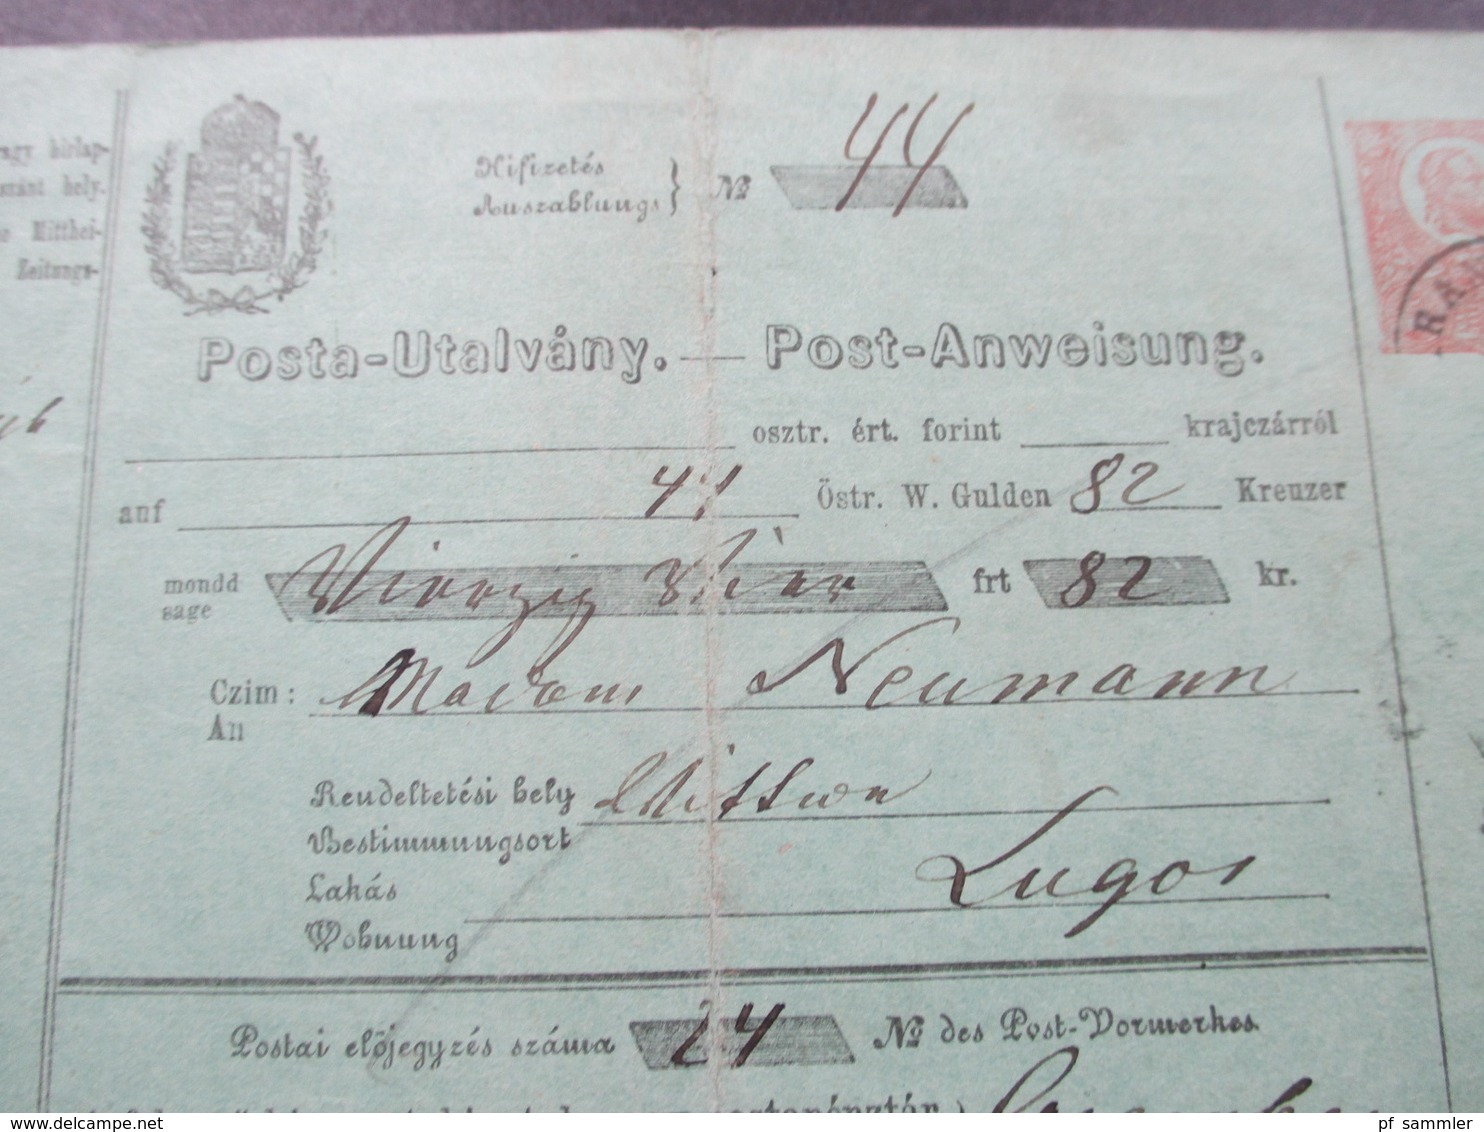 Kifizetés
Auszahlungs } № 44
agy hirlap-
szánt hely.
e Mitthei-
Zeitungs-
Posta-Utalvány. — Post-Anweisung.
osztr. ért. forint krajczárról
auf 44 Östr. W. Gulden 82 Kreuzer
mondd
sage
Vierzig Vier frt 82 kr.
Czim: Madam Neumann
An
Rendeltetési hely
Bestimmungsort
Lugos
Lakás
Wohnung
Postai előjegyzés száma 24 № des Post-Vormerkes.
delcampe.net
pf_sammler